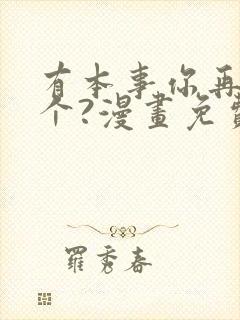 有本事你再
个?漫畫免費
羅秀春